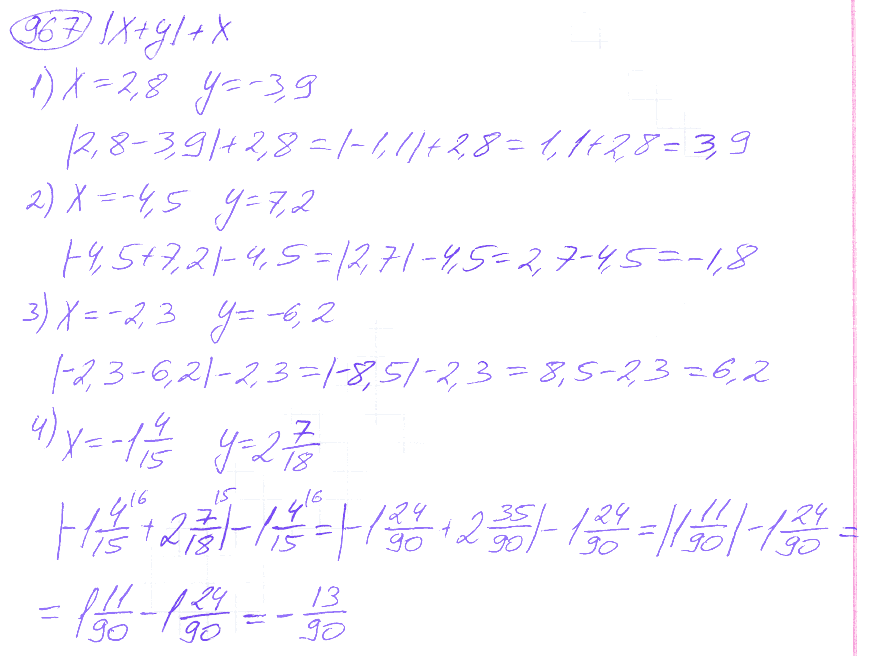 967 |x+y|+x
1) x=2,8 y=-3,9
|2,8-3,9|+2,8=|-1,1|+2,8=1,1+2,8=3,9
2) x=-4,5 y=7,2
|-4,5+7,2|-4,5=|2,7|-4,5=2,7-4,5=-1,8
3) x=-2,3 y=-6,2
|-2,3-6,2|-2,3=|-8,5|-2,3=8,5-2,3=6,2
4) x=-1 4/15 y=2 7/18
|-1 4/15^16 + 2 7/18^15|-1 4/15^16=|-1 24/90 + 2 35/90|-1 24/90=|1 11/90|-1 24/90=
=1 11/90-1 24/90=-13/90